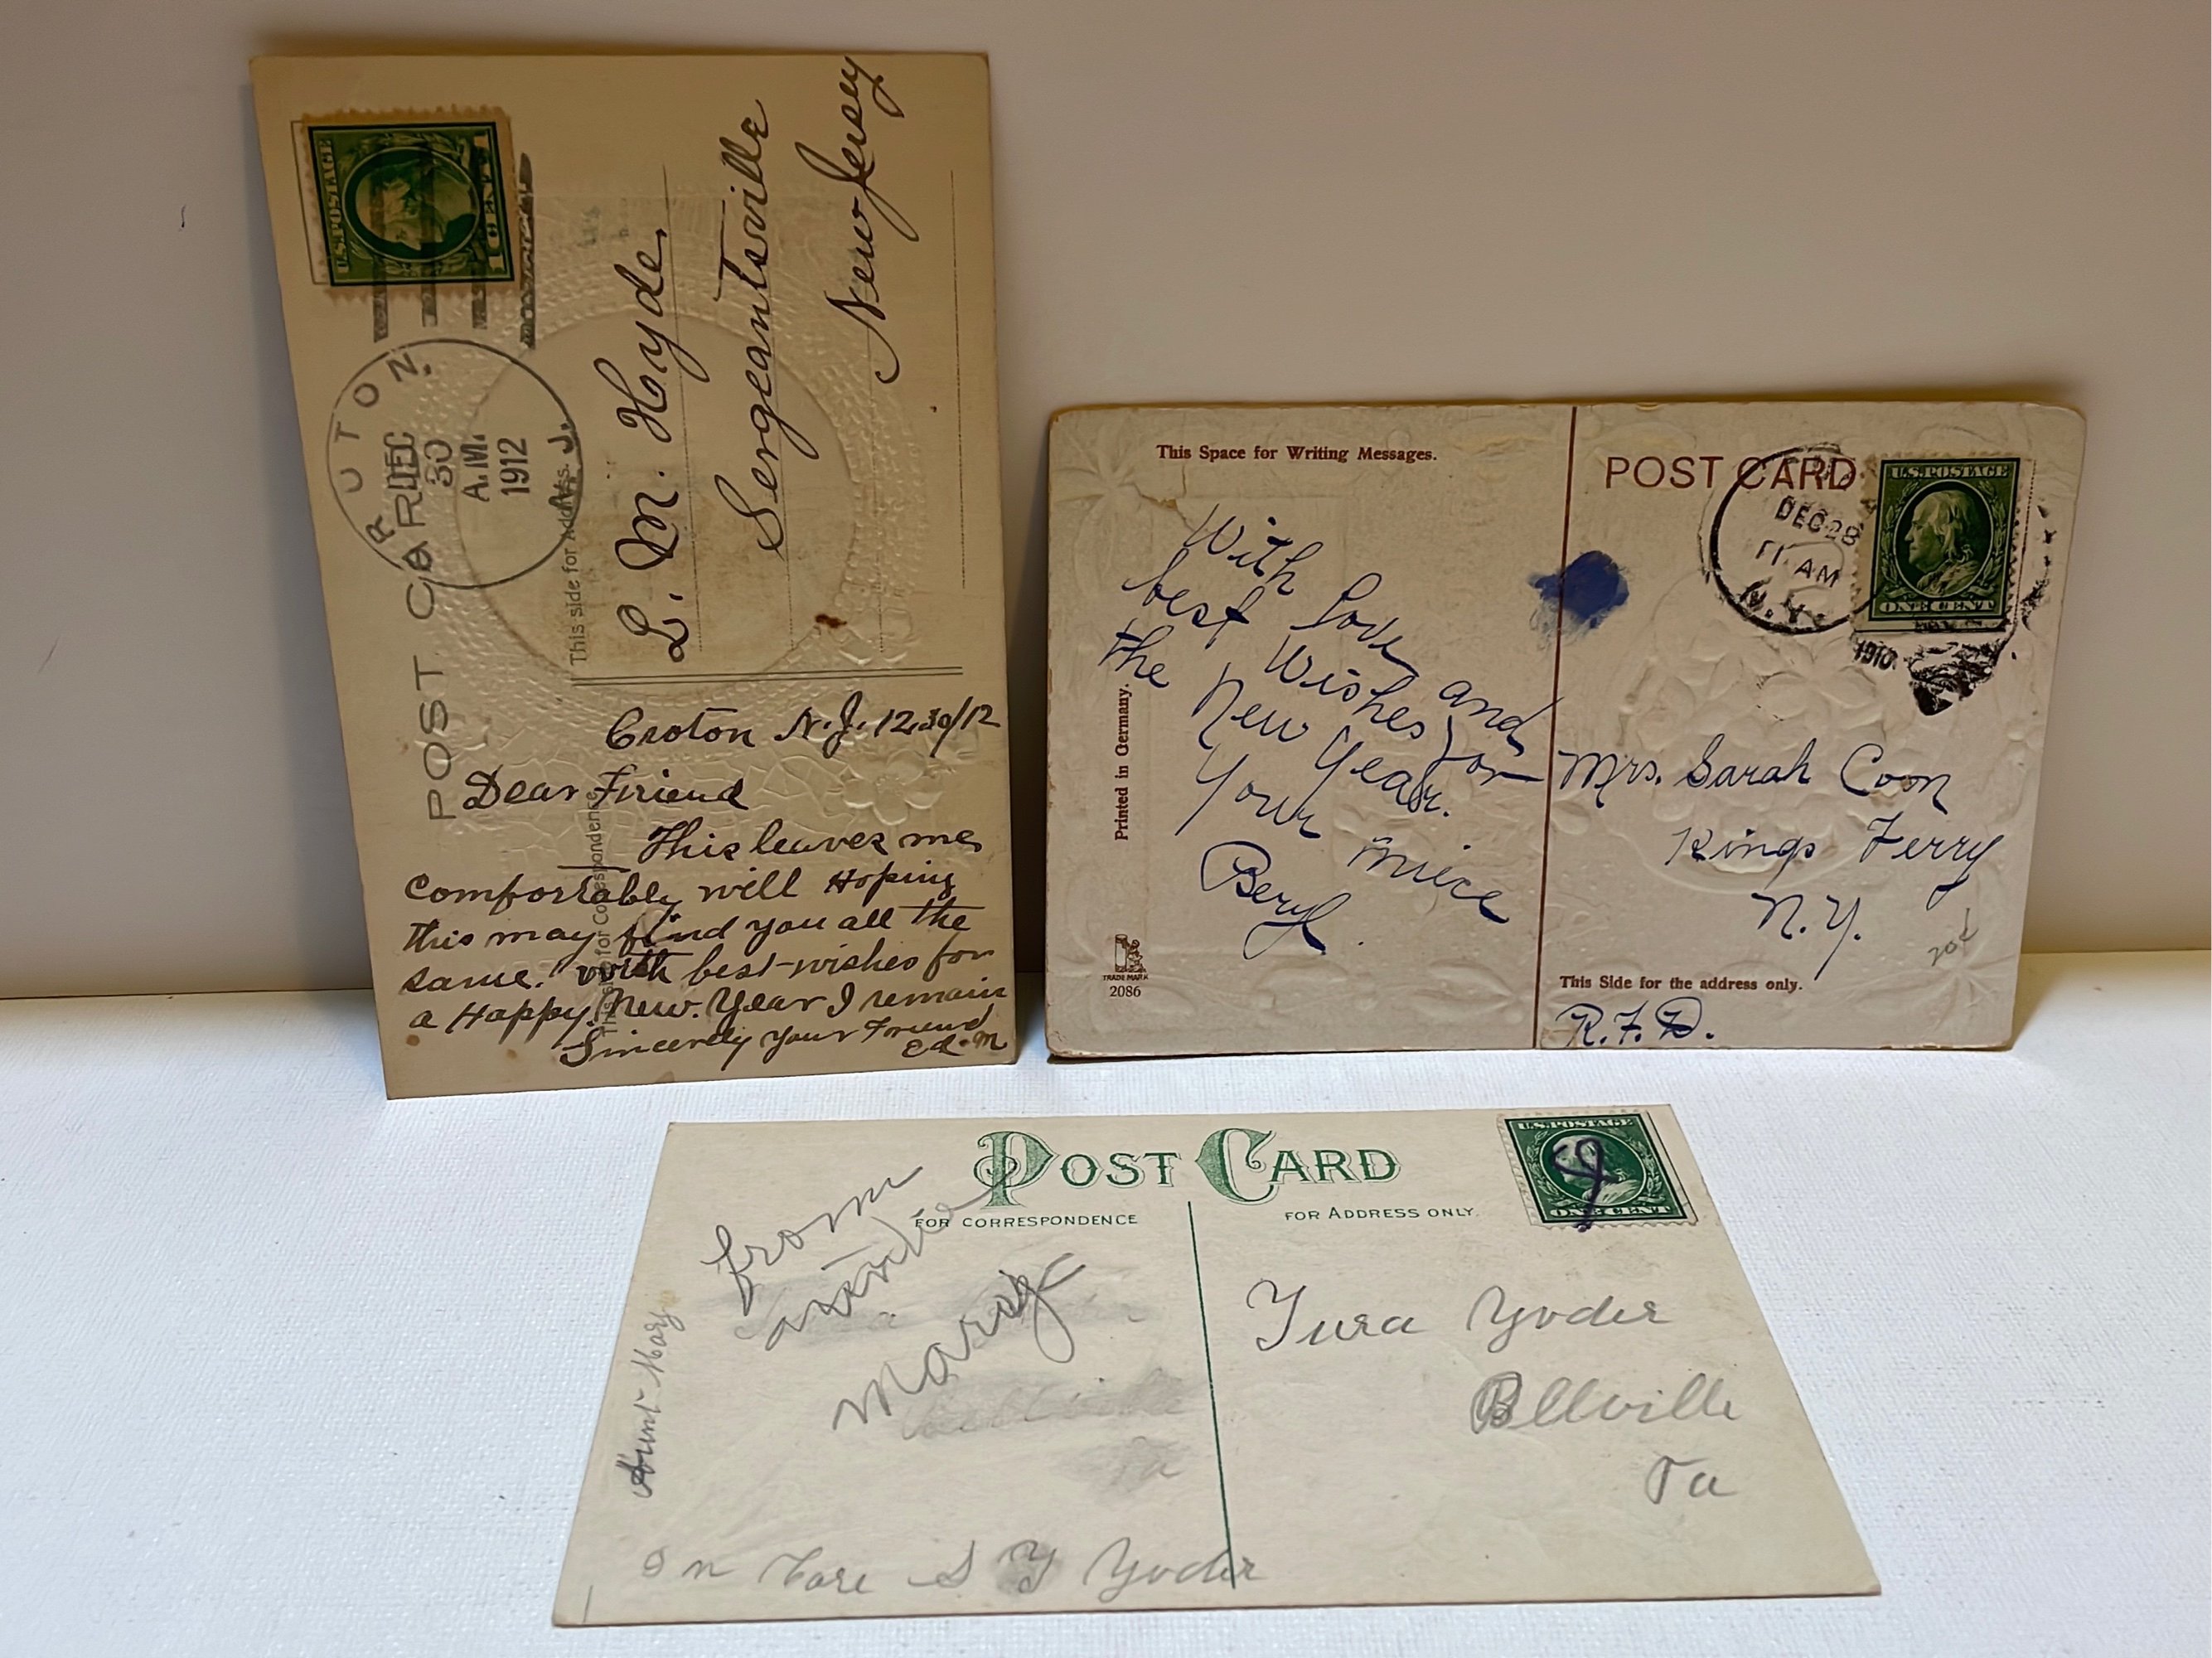 U.S. POSTAGE
1 CENT 1
CROTON
N. J.
DEC
30
A.M.
1912
POST CARD
This side for Address.
L. M. Hyde,
Sergeantsville
New Jersey
This side for Correspondence
Croton N.J. 12,30/12
Dear Friend
This leaves me,
Comfortably will Hoping
this may find you all the
same. with best-wishes for
a Happy. New. Year I remain
Sincerely your Friend
Ed. M
This Space for Writing Messages.
POST CARD
DEC 28
11 AM
N.Y.
1910
U.S. POSTAGE
ONE CENT
With Love and
best Wishes for
the New Year.
Your niece
Beryl.
Printed in Germany.
TRADE MARK
2086
Mrs. Sarah Coon
Kings Ferry
N.Y.
20¢
This Side for the address only.
R.F.D.
POST CARD
FOR CORRESPONDENCE
FOR ADDRESS ONLY.
U.S. POSTAGE
ONE CENT
from
Mary
Aunt Mary
Bellville
Pa
Yoder
Bellville
Pa
In Care S Y Yoder